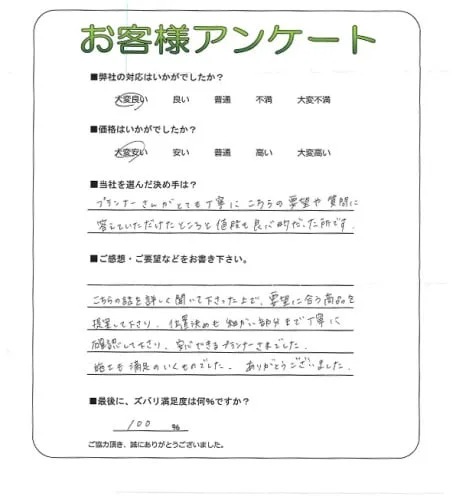 お客様アンケート
■弊社の対応はいかがでしたか?
大変良い 良い 普通 不満 大変不満
■価格はいかがでしたか?
大変安い 安い 普通 高い 大変高い
■当社を選んだ決め手は?
プランナーさんがとても丁寧に こちらの要望や質問に
答えていただけたところと価格も良心的だった所です。
■ご感想・ご要望などをお書き下さい。
こちらの話を詳しく聞いて下さった上で、要望に合う商品を
提案して下さり、位置決めも細かい部分まで丁寧に
確認して下さり、安心できるプランナーさまでした。
施工も満足のいくものでした。ありがとうございました。
■最後に、ズバリ満足度は何%ですか?
100 %
ご協力頂き、誠にありがとうございました。